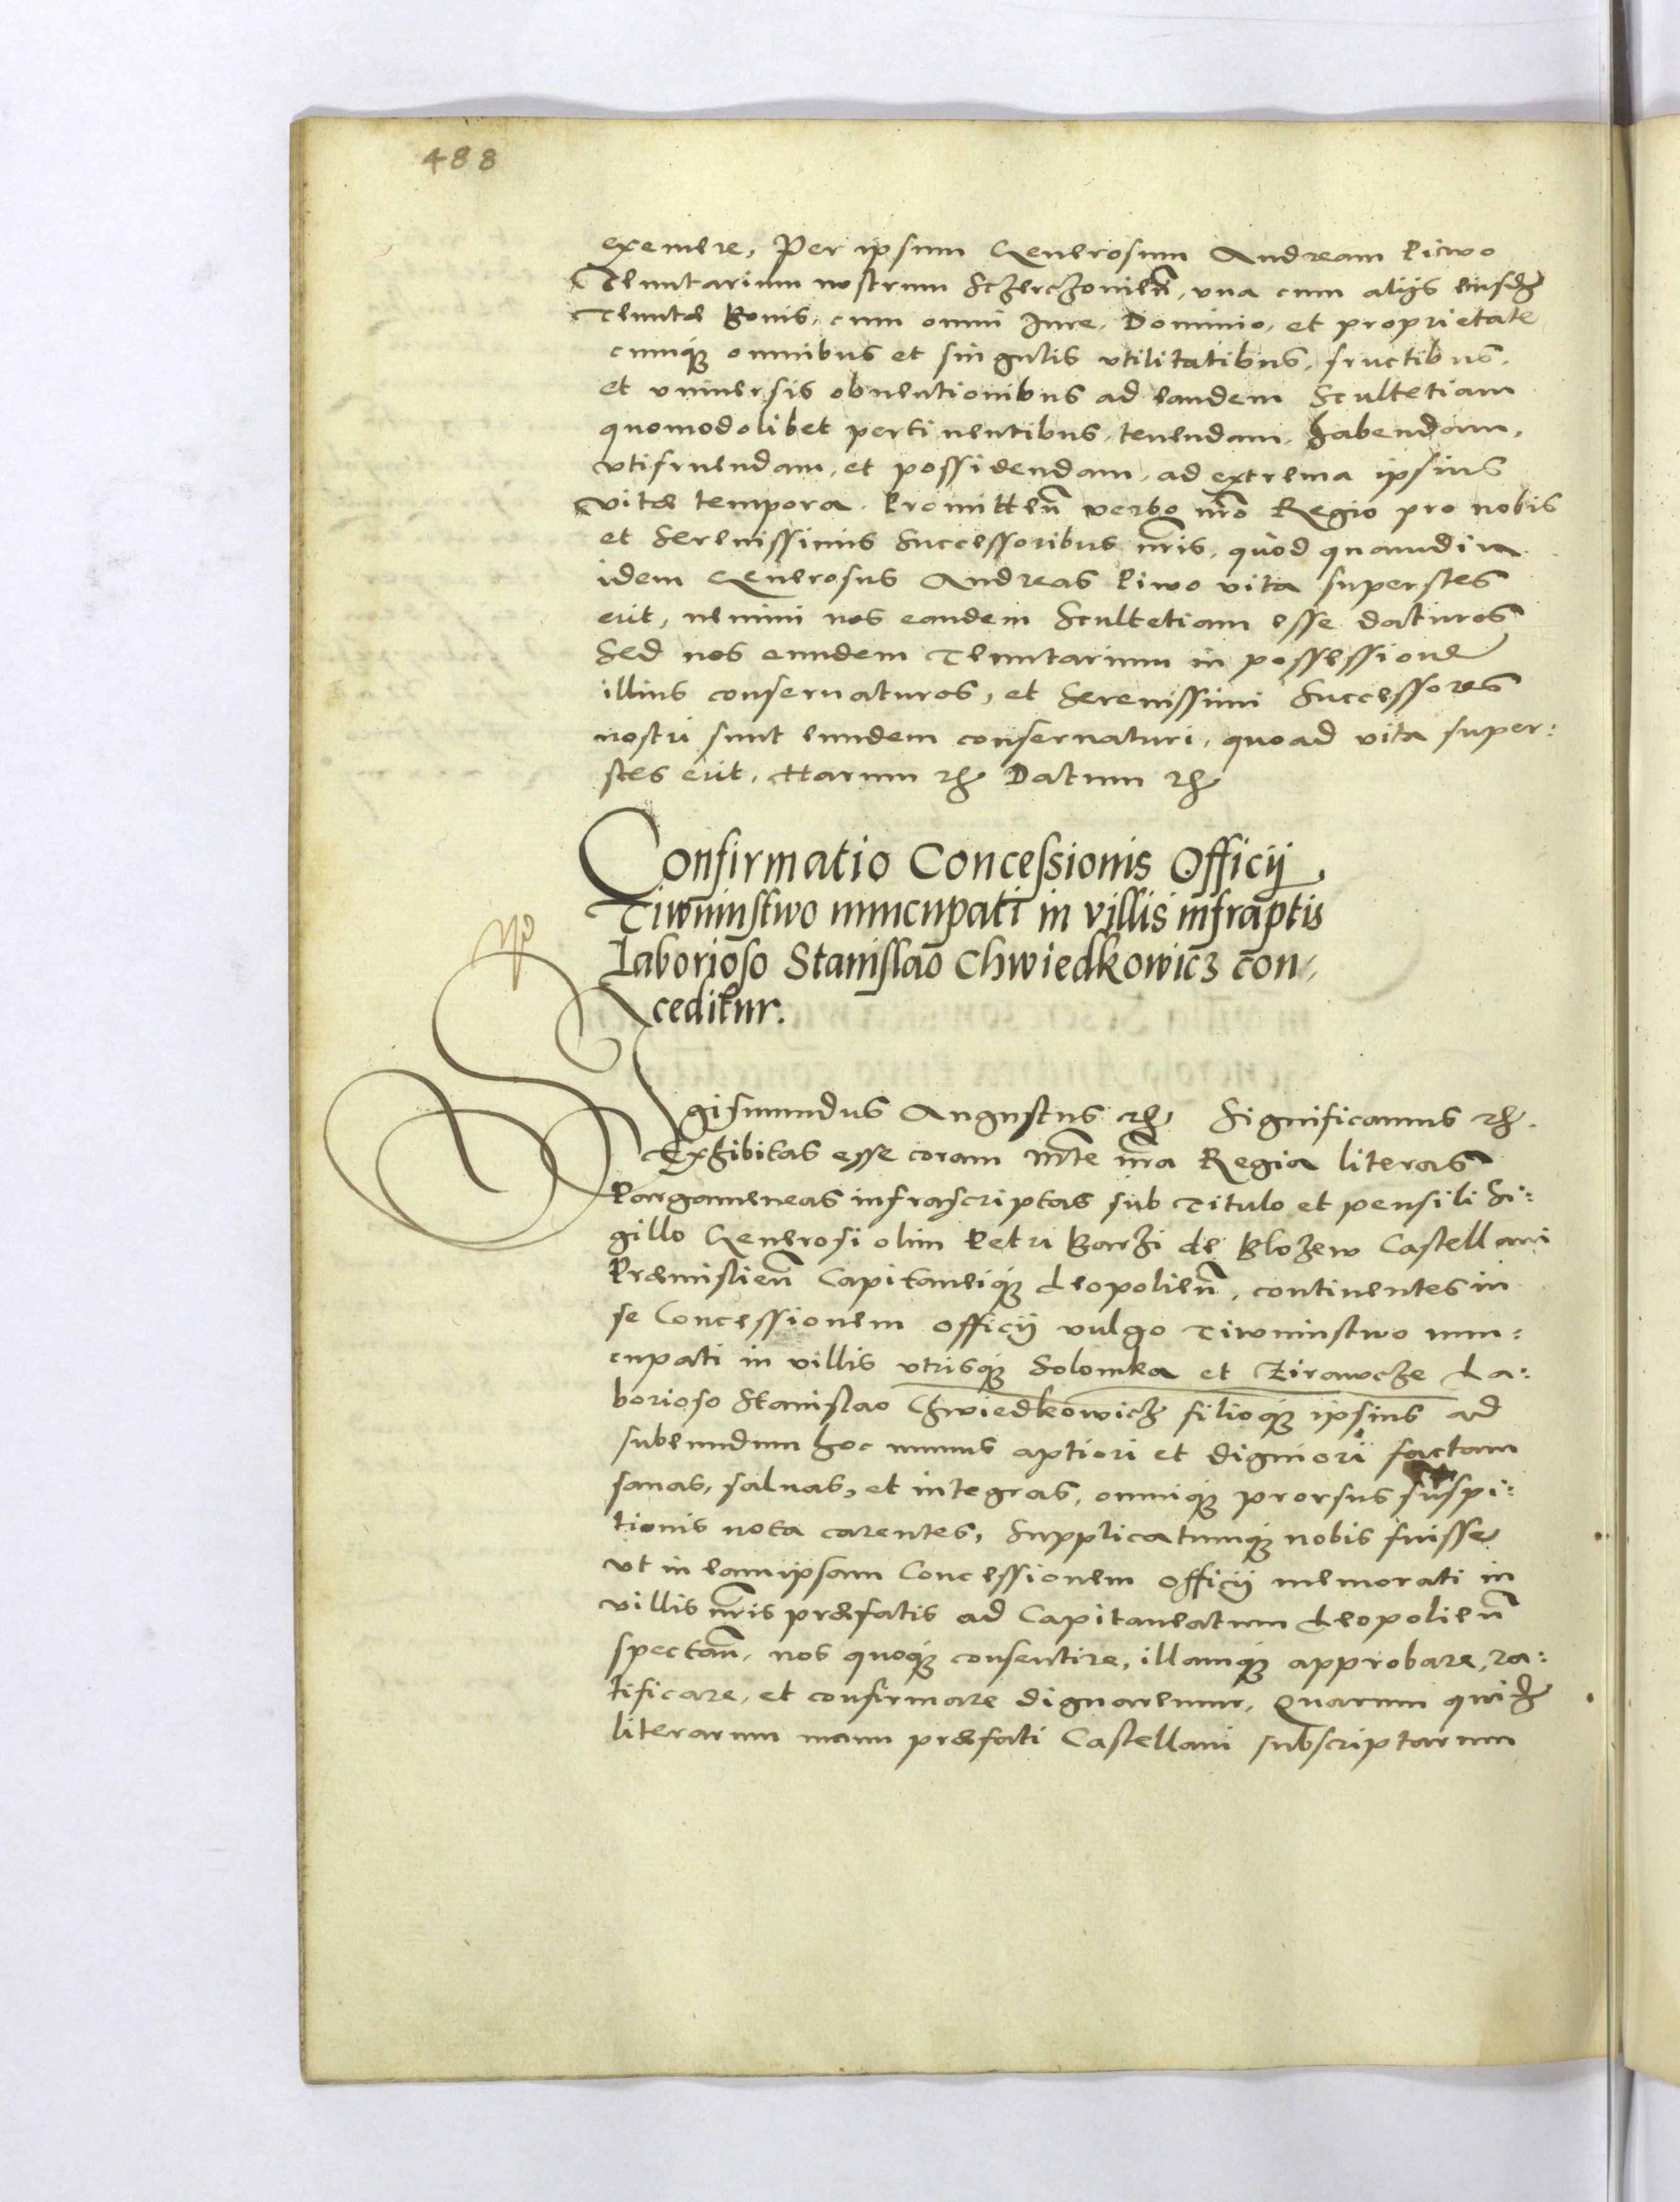 488
eximere, Per ipsum Generosum Andream Piwo
Tenutarium nostrum Sczerczovien̄, vna cum aliis eiusdē
Tenutæ Bonis, cum omni Iure, Dominio, et proprietate
cumq́ꝫ omnibus et singulis vtilitatibus, fructibus,
et vniuersis obuentionibus ad eandem Scultetiam
quomodolibet pertinentibus, tenendam, habendam,
vtifruendam, et possidendam, ad extrema ipsius
vitæ tempora. Promitten̄ verbo nr̄o Regio pro nobis
et Serenissimis Successoribus nr̄is, quòd quamdiu
idem Generosus Andreas Piwo vita superstes
erit, nemini nos eandem Scultetiam esse daturos
Sed nos eundem Tenutarium in possessione
illius conseruaturos, et Serenissimi Successores
nostri sunt eundem conseruaturi, quoad vita super:
stes erit. Harum ꝛꝫ Datum ꝛꝫ
Confirmatio Concessionis Officij
Tiwuinstwo nuncupati in villis infrāptis
Laborioso Stanislao Chwiedkowicz con,
ceditur.
Sigismundus Augustus ꝛꝫ Significamus ꝛꝫ.
Exhibitas esse coram M̄te nr̄a Regia literas
Pargameneas infrascriptas sub Titulo et pensili Si:
gillo Generosi olim Petri Barzi de Blozew Castellani
Præmislien̄ Capitaneiq́ꝫ Leopolien̄, continentes in
se Concessionem officij vulgo Tiwuinstwo nun:
cupati in villis vtrisq́ꝫ Solonka et Zirawcze La:
borioso Stanislao Chwiedkowicz filioq́ꝫ ipsius ad
subeundum hoc munus aptiori et digniori factam
sanas, saluas, et integras, omniq́ꝫ prorsus suspi:
tionis nota carentes, Supplicatumq́ꝫ nobis fuisse
vt in eam ipsam Concessionem officij memorati in
villis nr̄is præfatis ad Capitaneatum Leopolien̄
spectan̄, nos quoq́ꝫ consentire, illamq́ꝫ approbare, ra:
tificare, et confirmare dignaremur, Quarum quidē
literarum manu præfati Castellani subscriptarum